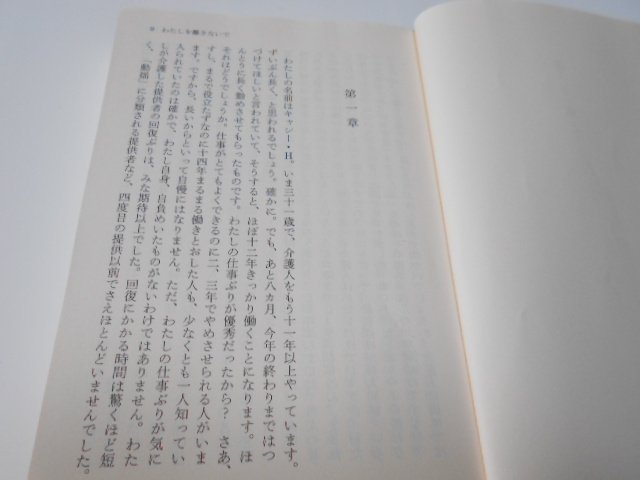 9 わたしを離さないで
第一章
わたしの名前はキャシー・H。いま三十一歳で、介護人をもう十一年以上やっています。
ずいぶん長く、と思われるでしょう。確かに。でも、あと八カ月、今年の終わりまではつ
づけてほしいと言われていて、そうすると、ほぼ十二年きっかり働くことになります。ほ
んとうに長く勤めさせてもらったものです。わたしの仕事ぶりが優秀だったから？ さあ、
それはどうでしょうか。仕事がとてもよくできるのに二、三年でやめさせられる人がいま
すし、まるで役立たずなのに十四年まるまる働きとおした人も、少なくとも一人知ってい
ます。ですから、長いからといって自慢にはなりません。ただ、わたしの仕事ぶりが気に
入られていたのは確かで、わたし自身、自負めいたものがないわけではありません。わた
しが介護した提供者の回復ぶりは、みな期待以上でした。回復にかかる時間は驚くほど短
く、「動揺」に分類される提供者など、四度目の提供以前でさえほとんどいませんでした。